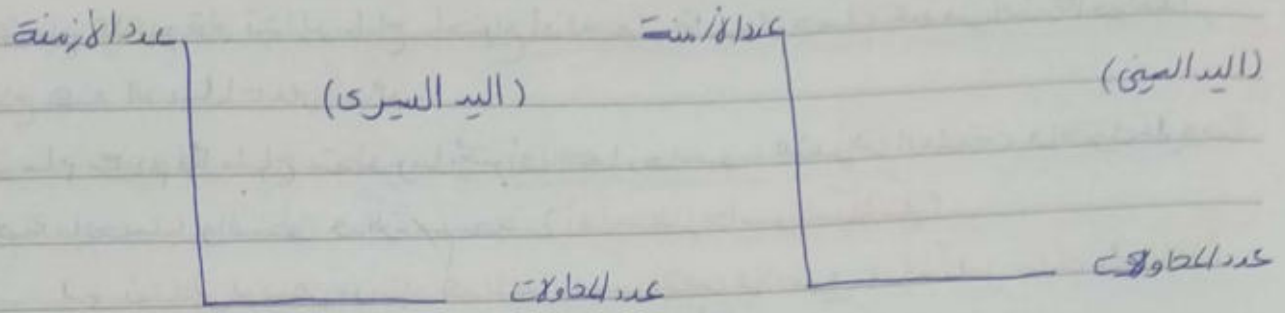 عدد الأزمنة
(اليد اليمنى)
عدد المحاولات
عدد الأزمنة
(اليد اليسرى)
عدد المحاولات